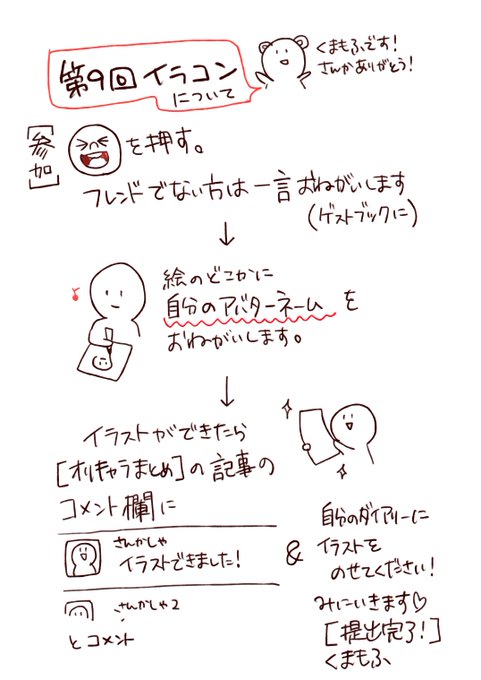 第9回 イラコン
について
くまもふです！
さんかありがとう！
[参加]
を押す。
フレンドでない方は一言おねがいします
(ゲストブックに)
↓
絵のどこかに
自分のアバターネームを
おねがいします。
↓
イラストができたら
[オリキャラまとめ]の記事の
コメント欄に
さんかしゃ
イラストできました！
さんかしゃ2
とコメント
&
自分のダイアリーに
イラストを
のせてください！
みにいきます♡
[提出完了！]
くまもふ